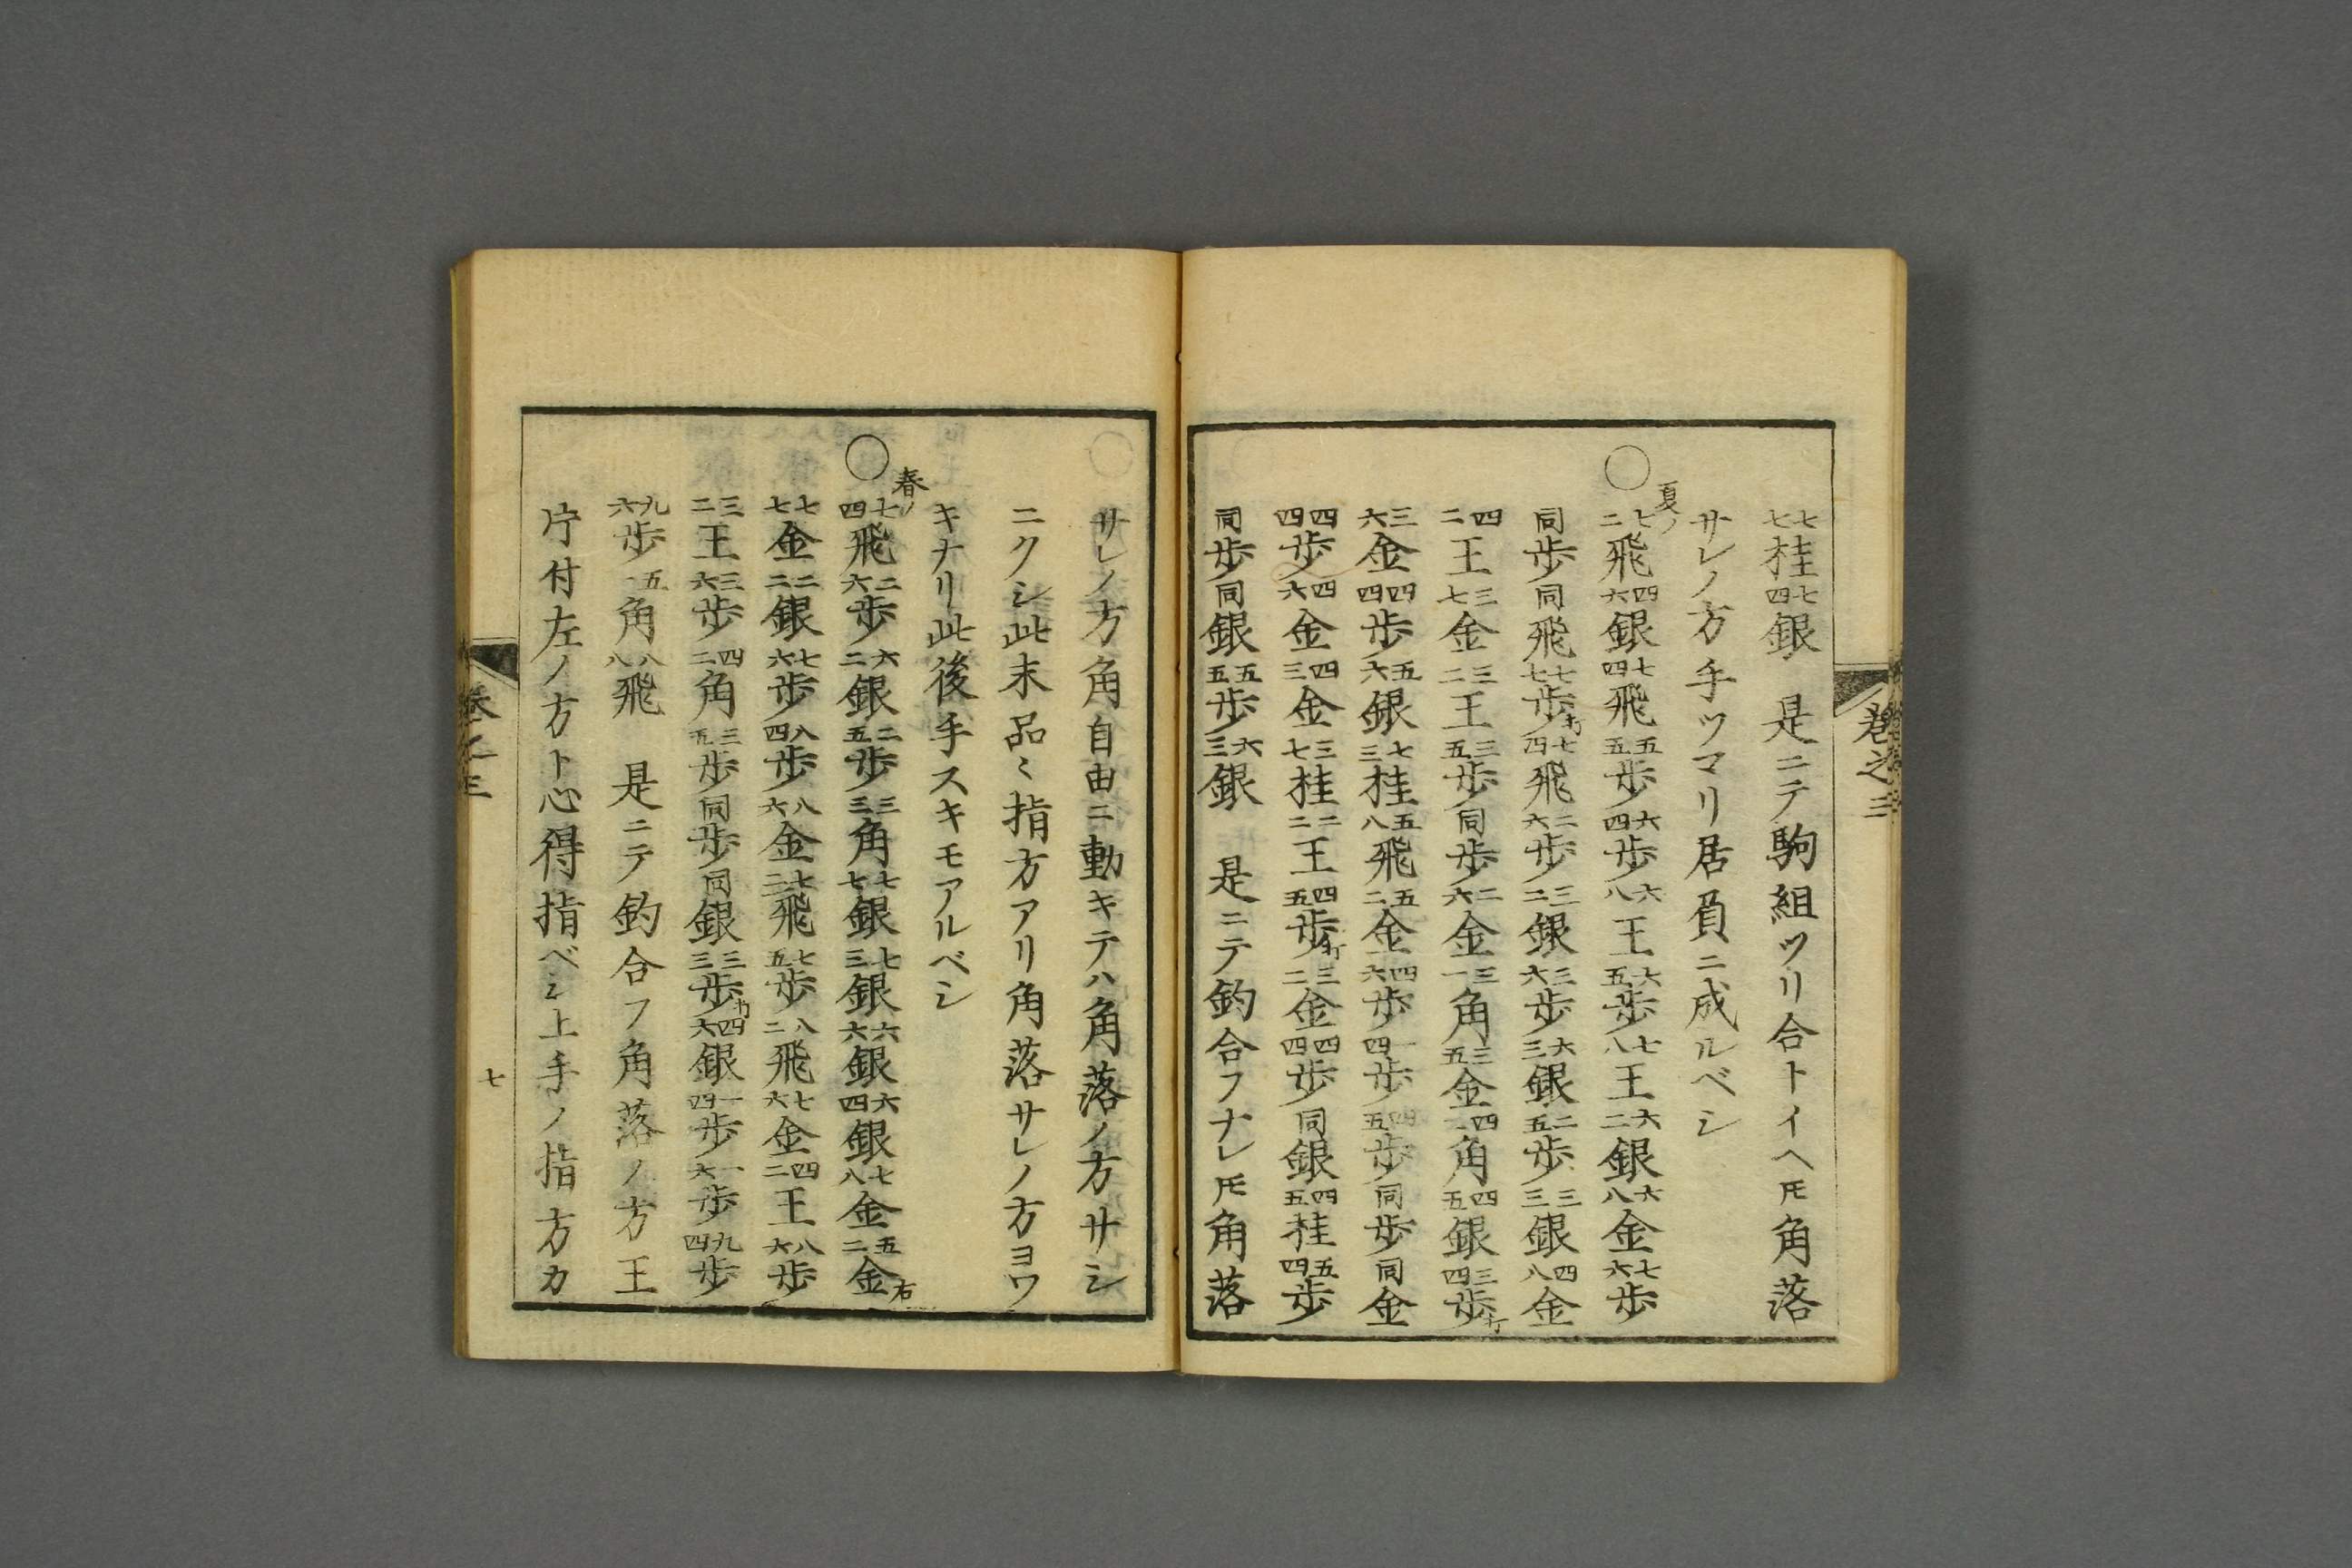 巻之三
七七桂七四銀 是ニテ駒組ツリ合トイヘ𪜈角落
サレノ方手ツマリ居負ニ成ルベシ
○夏ノ七二飛四六銀七四飛五五歩六四歩六八王六五歩七八王六二銀六八金七六歩
同歩同飛七七歩打七四飛二六歩三二銀三六歩六三銀二五歩三三銀四八金
四二王三七金三二王三五歩同歩二六金三一角三五金四二角四五銀三四歩打
三六金四四歩五六銀七三桂五八飛五二金四六歩一四歩四五歩同歩同金
四四歩四六金四三金三七桂二二王四五歩打三二金四四歩同銀四五桂五四歩
同歩同銀五五歩六三銀 是ニテ釣合フナレ𪜈角落
サレノ方角自由ニ動キテハ角落ノ方サシ
ニクシ此末品〻指方アリ角落サレノ方ヨワ
キナリ此後手スキモアルベシ
○春ノ七四飛二六歩六二銀二五歩三三角七七銀七三銀六六銀六四銀七八金五二金右
七七金二二銀七六歩八四歩八六金七二飛七五歩八二飛七六金四二王八六歩
三二王三六歩四二角三五歩同歩同銀三三歩打四六銀一四歩一六歩九四歩
九六歩五一角八八飛 是ニテ釣合フ角落ノ方王
片付左ノ方ト心得指ベシ上手ノ指方カ
巻之三
七